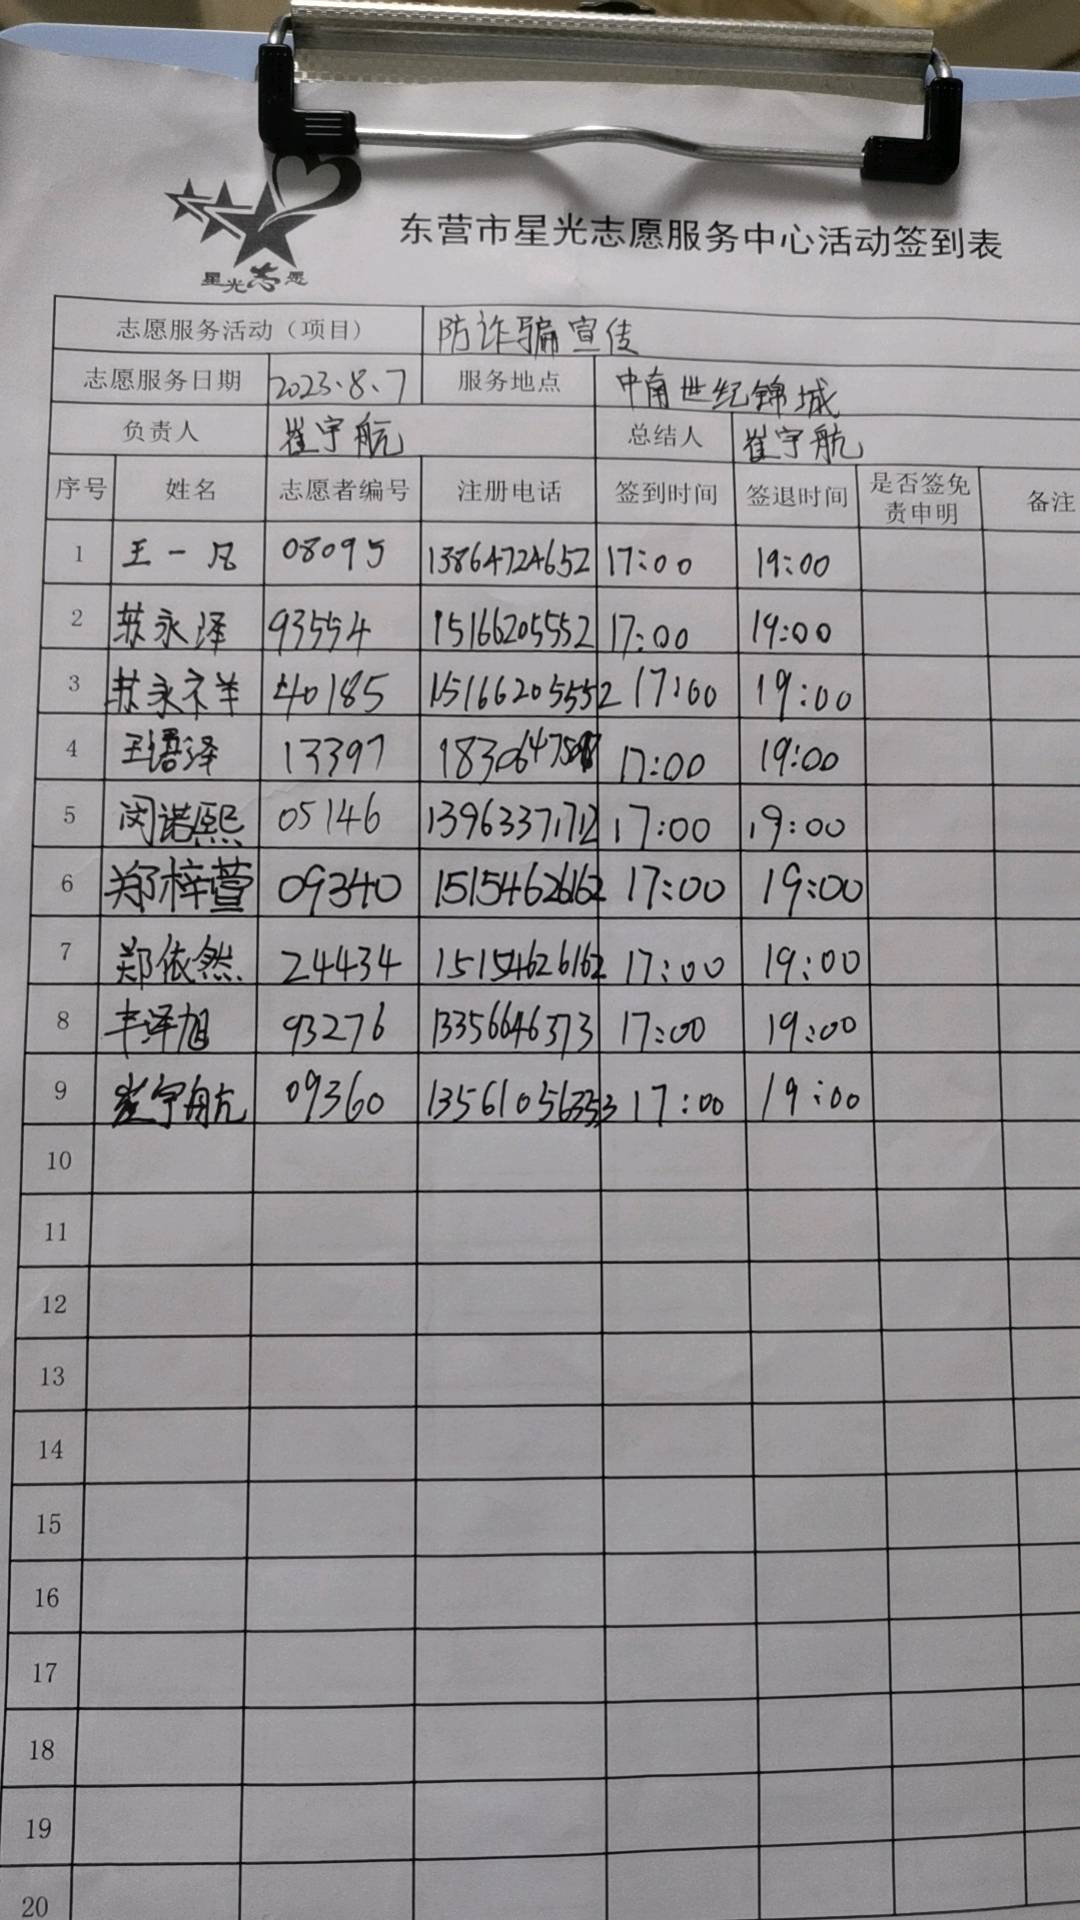 星光志愿
东营市星光志愿服务中心活动签到表
志愿服务活动（项目） 防诈骗宣传
志愿服务日期 2023.8.7 服务地点 中南世纪锦城
负责人 崔宇航 总结人 崔宇航
序号 姓名 志愿者编号 注册电话 签到时间 签退时间 是否签免责申明 备注
1 王一凡 08095 13864724652 17:00 19:00
2 苏永泽 93554 15166205552 17:00 19:00
3 苏永祥 40185 15166205552 17:00 19:00
4 王语泽 13397 17:00 19:00
5 闵诺熙 05146 13963371712 17:00 19:00
6 郑梓萱 09340 15154626162 17:00 19:00
7 郑依然 24434 15154626162 17:00 19:00
8 丰泽旭 93276 13356646373 17:00 19:00
9 崔宇航 09360 13561056353 17:00 19:00
10
11
12
13
14
15
16
17
18
19
20